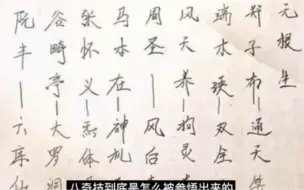 无根生
郑子布—通天
端木瑛—双全
风天养—拘灵
周圣—风后
马本在—神机
怀义—炁体
谷畸亭—大罗洞
阮丰—六库仙
八奇技到底是怎么被参悟出来的